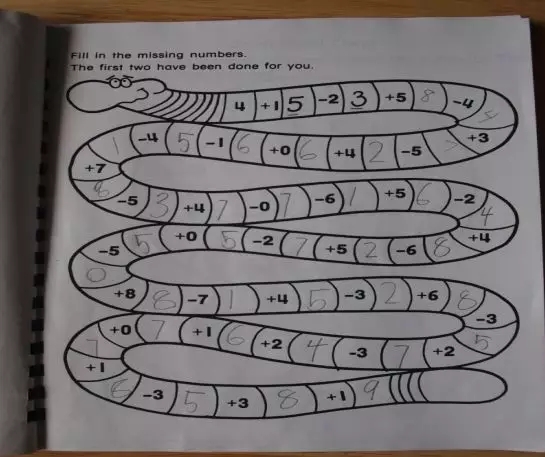 Fill in the missing numbers.
The first two have been done for you.
4 +1 5 -2 3 +5 8 -4
4
+3
1 -4 5 -1 6 +0 6 +4 2 -5 7
+7
8
-5 3 +4 7 -0 7 -6 1 +5 6 -2
4
+4
-5 5 +0 5 -2 7 +5 2 -6 8
0
+8 8 -7 1 +4 5 -3 2 +6 8
-3
5
+0 7 +1 6 +2 4 -3 7 +2
7
+1
-3 5 +3 8 +1 9